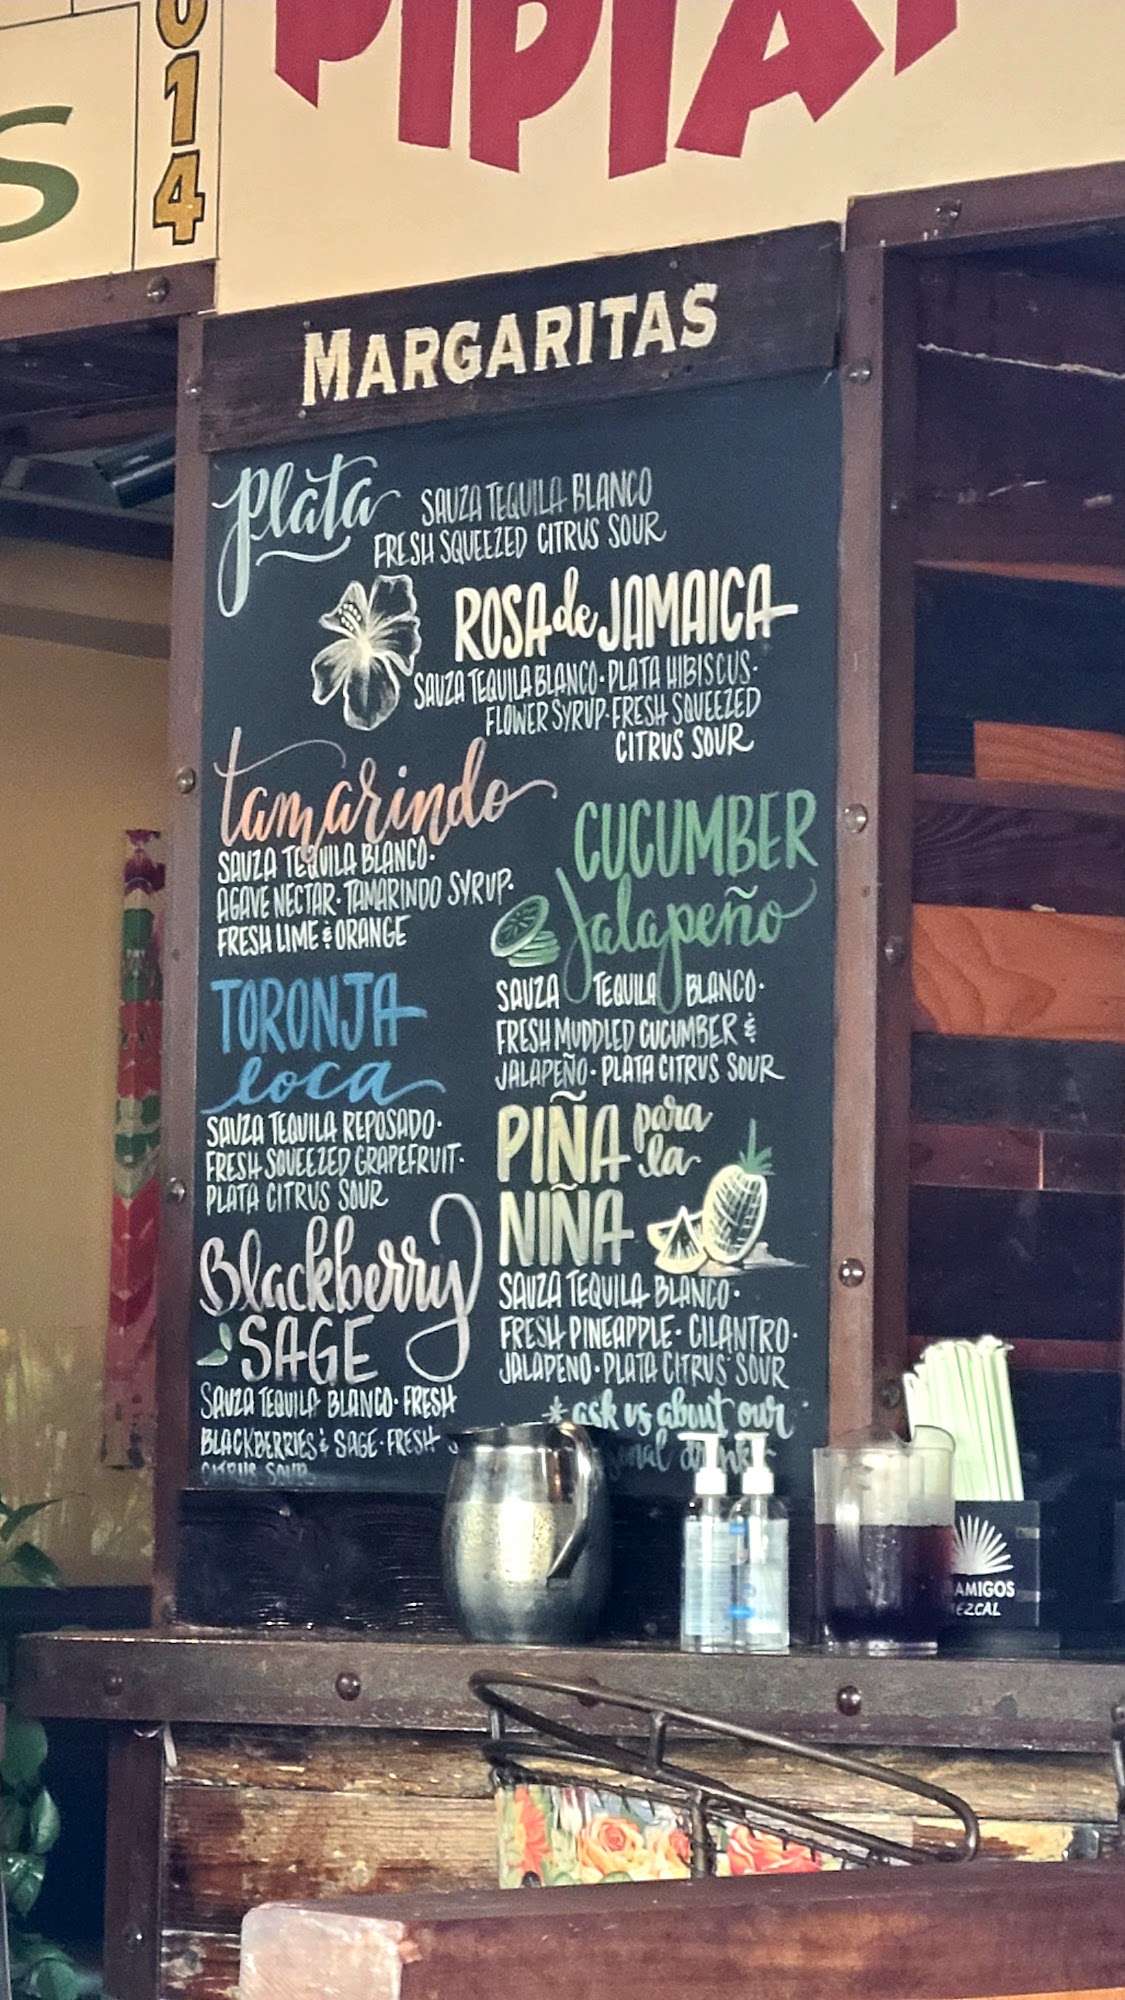 014
S
MARGARITAS
Plata
SAUZA TEQUILA BLANCO
FRESH SQUEEZED CITRUS SOUR
ROSA de JAMAICA
SAUZA TEQUILA BLANCO · PLATA HIBISCUS ·
FLOWER SYRUP · FRESH SQUEEZED
CITRUS SOUR
tamarindo
SAUZA TEQUILA BLANCO ·
AGAVE NECTAR · TAMARINDO SYRUP ·
FRESH LIME & ORANGE
CUCUMBER
Jalapeño
SAUZA TEQUILA BLANCO ·
FRESH MUDDLED CUCUMBER &
JALAPEÑO · PLATA CITRUS SOUR
TORONJA
loca
SAUZA TEQUILA REPOSADO ·
FRESH SQUEEZED GRAPEFRUIT ·
PLATA CITRUS SOUR
PIÑA para
la
NIÑA
SAUZA TEQUILA BLANCO ·
FRESH PINEAPPLE · CILANTRO ·
JALAPENO · PLATA CITRUS SOUR
Blackberry
SAGE
SAUZA TEQUILA BLANCO · FRESH
BLACKBERRIES & SAGE · FRESH
CITRUS SOUR
*ask us about our
AMIGOS
MEZCAL